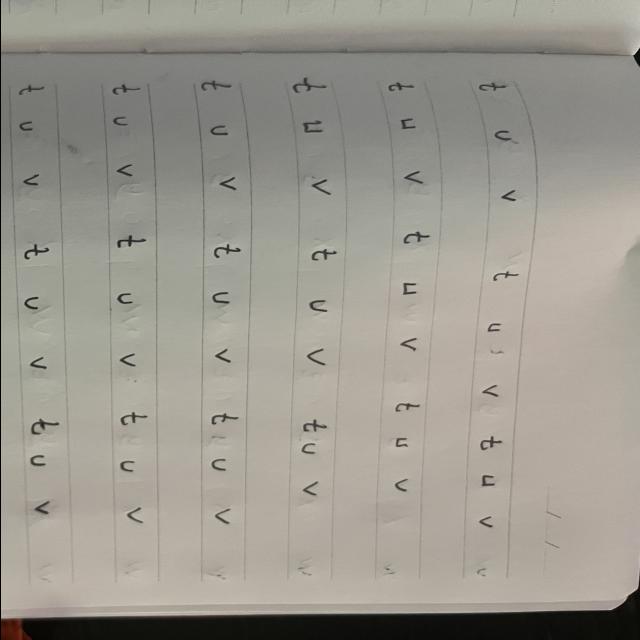 t u v t u v t u v
t u v t u v t u v
t u v t u v t u v
t u v t u v t u v
t u v t u v t u v
t u v t u v t u v